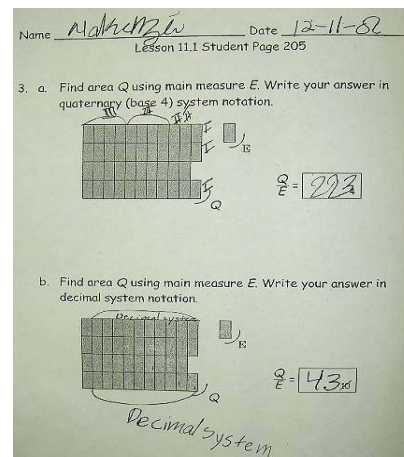 Name Makenzie Date 12-11-02
Lesson 11.1 Student Page 205
3. a. Find area Q using main measure E. Write your answer in
quaternary (base 4) system notation.
III III II II
I
I E
I
Q
Q/E = 223₄
b. Find area Q using main measure E. Write your answer in
decimal system notation.
Decimal system
E
Q
Q/E = 43₁₀
Decimal system